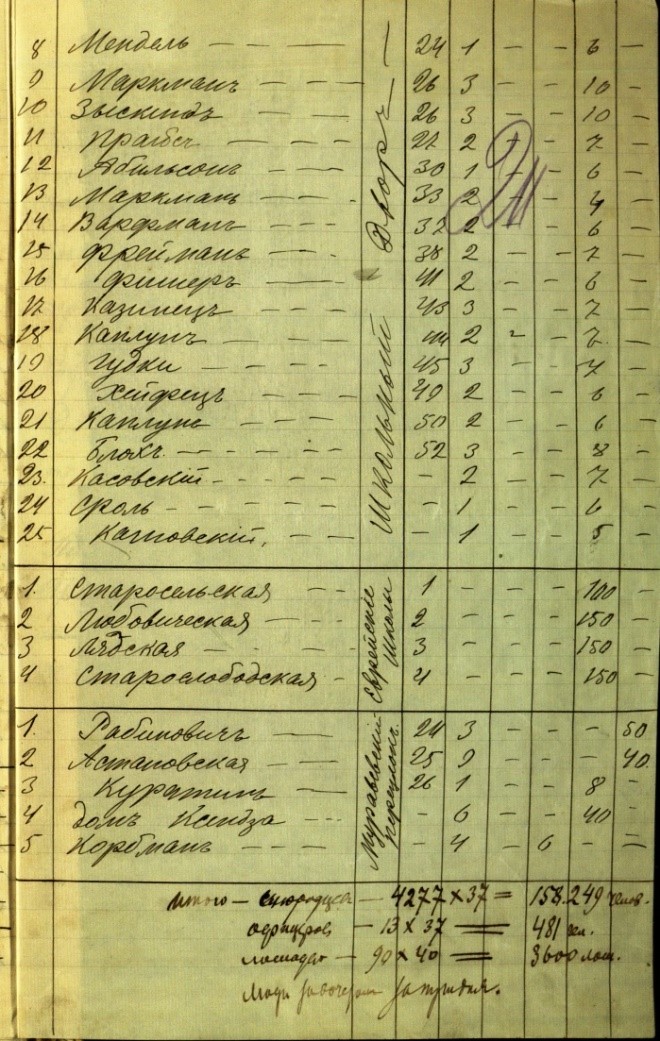 8 Мендель — — — 24 1 — — 6 —
9 Маркманъ — — — 26 3 — — 10 —
10 Зыскиндъ — — — 26 3 — — 10 —
11 2 — — 7 —
12 Абильсонъ — — — 30 1 — — 6 —
13 Маркманъ — — — 33 2 — — 4 —
14 Варфманъ — — — 32 2 — — 6 —
15 Фрейманъ — — — 38 2 — — 7 —
16 Фишеръ — — — 41 2 — — 6 —
17 Казинецъ — — — 43 3 — — 7 —
18 Каплунъ — — — 44 2 — — 7 —
19 Гудкин — — — 45 3 — — 7 —
20 Хейфецъ — — — 49 2 — — 6 —
21 Каплунъ — — — 50 2 — — 6 —
22 Блохъ — — — 52 3 — — 8 —
23. Касовскій — — — — 2 — — 7 —
24 Сроль — — — — 1 — — 6 —
25 — 1 — — 5 —
Школьный Дворъ
1. Старосельская — — 1 — — — 100 —
2 Любовическая — — 2 — — — 150 —
3 Лядская — — — 3 — — — 150 —
4 Старослободская — 4 — — — 150 —
Еврейскіе Школы
1. Рабиновичъ — — 24 3 — — — 50
2 Астановская — — 25 9 — — — 40
3 26 1 — — 8 —
4 Домъ Ксендза — — — 6 — — 40 —
5 Корбманъ — — — 4 — 6 — —
Муравьевскій переулокъ
Итого — — 4277 x 37 = 158.249 челов.
офицеров — 13 x 37 = 481 чел.
лошадей — 90 x 40 = 3600 лош.
Люди